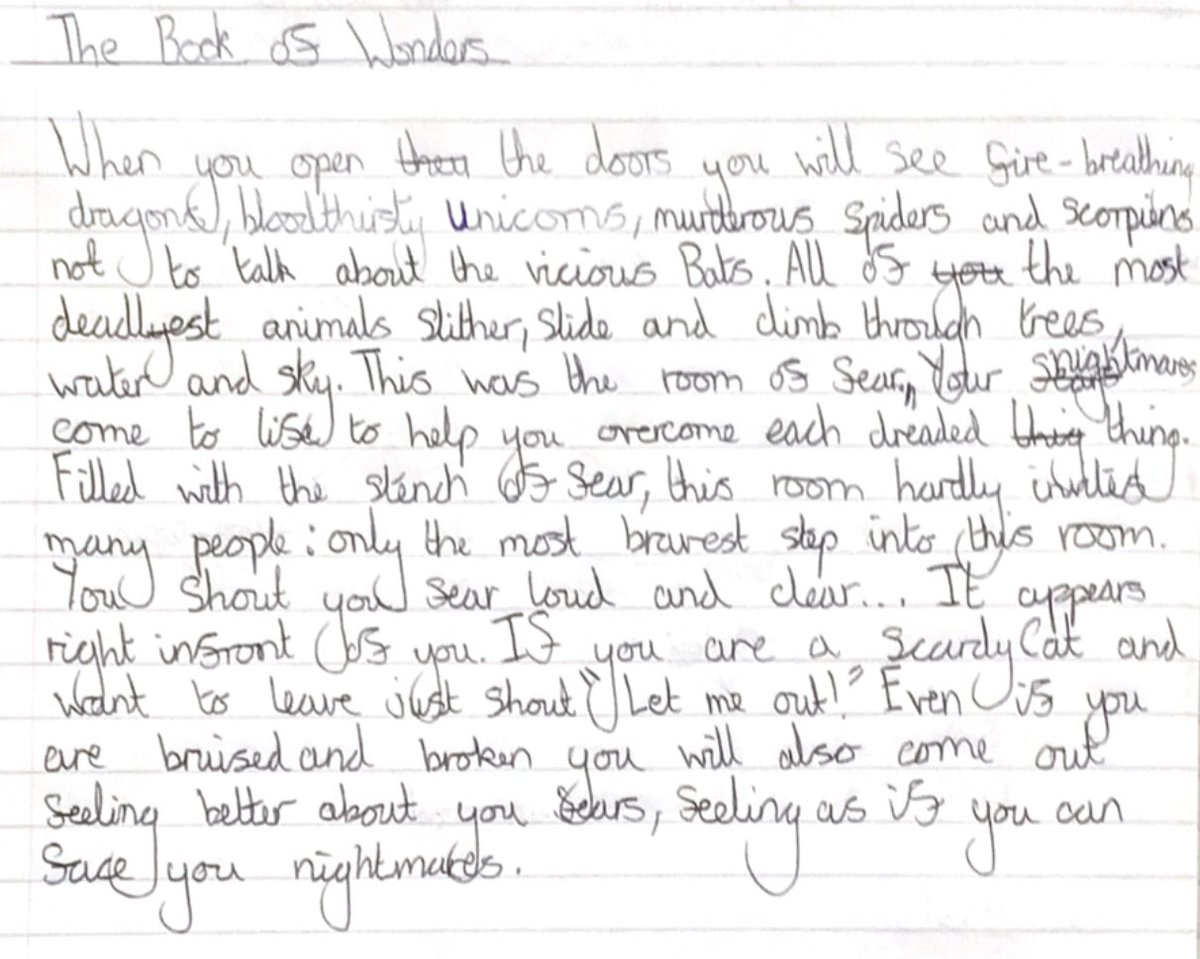 The Book of Wonders
When you open then the doors you will see fire-breathing
dragons, bloodthirsty unicorns, murderous spiders and scorpions
not to talk about the vicious Bats. All of you the most
deadlyest animals slither, slide and climb through trees,
water and sky. This was the room of fear, Your nightmares
come to life to help you overcome each dreaded thig thing.
Filled with the stench of fear, this room hardly invited
many people: only the most bravest step into this room.
You shout you fear loud and clear... It appears
right infront of you. If you are a ScardyCat and
want to leave just shout "Let me out!" Even if you
are bruised and broken you will also come out
feeling better about you fears, feeling as if you can
face you nightmares.